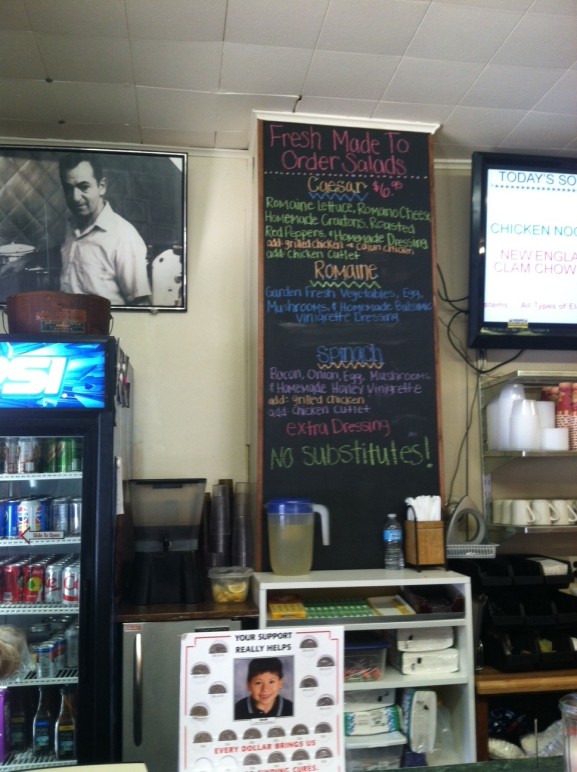 Fresh Made To
Order Salads
Caesar $6.95
Romaine Lettuce, Romano Cheese
Homemade Croutons, Roasted
Red Peppers, & Homemade Dressing
add: grilled chicken or Cajun Chicken
add: Chicken Cutlet
Romaine
Garden Fresh Vegetables, Egg,
Mushrooms, & Homemade Balsamic
Vinigrette Dressing
Spinach
Bacon, Onion, Egg, Mushrooms
& Homemade Honey Vinigrette
add: grilled Chicken
add: Chicken Cutlet
extra Dressing
NO Substitutes!
TODAY'S SO
CHICKEN NOO
NEW ENGLA
CLAM CHOW
All Types of
SI
YOUR SUPPORT
REALLY HELPS
EVERY DOLLAR BRINGS US
CURES.